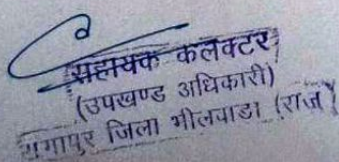 सहायक कलक्टर
(उपखण्ड अधिकारी)
गंगापुर जिला भीलवाडा (राज)